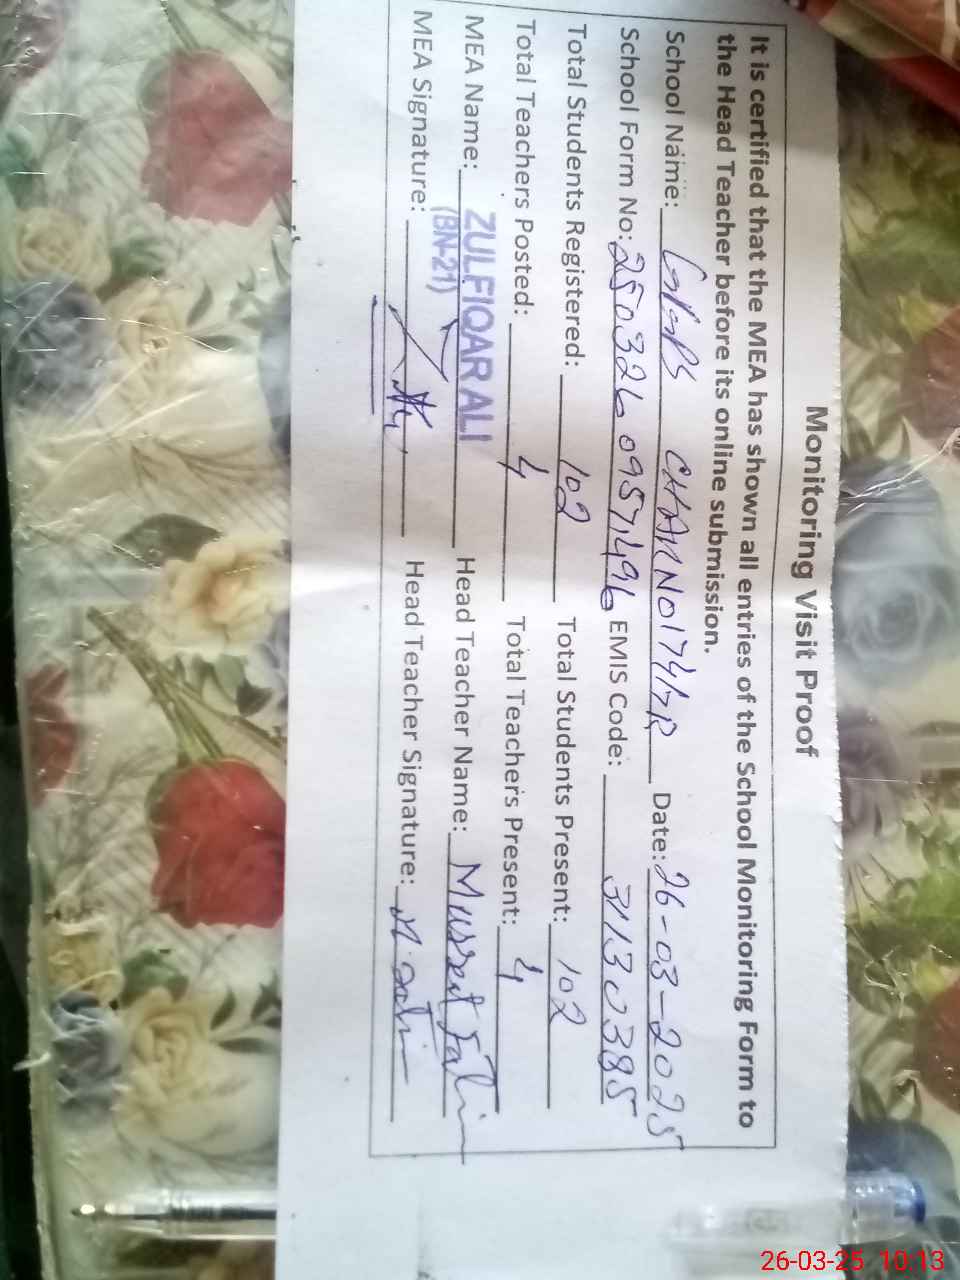 Monitoring Visit Proof
It is certified that the MEA has shown all entries of the School Monitoring Form to
the Head Teacher before its online submission.
School Name: GGPS CHAK NO 174/7R Date: 26-03-2025
School Form No: 2503260957496 EMIS Code: 31130385
Total Students Registered: 102 Total Students Present: 102
Total Teachers Posted: 4 Total Teachers Present: 4
MEA Name: ZULFIQAR ALI Head Teacher Name: Mussrat
(BN-21)
MEA Signature: Head Teacher Signature:
26-03-25 10:13